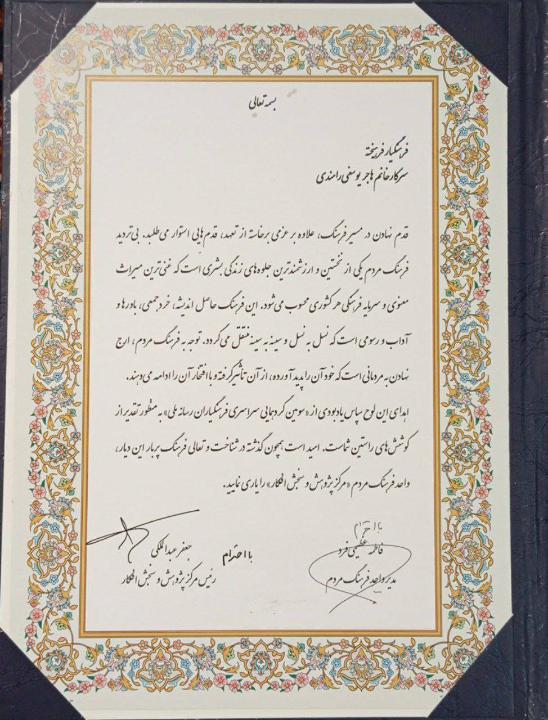 بسمه تعالی
فرهنگیار فرهیخته
سرکار خانم هاجر یوسفی رامندی
قدم نهادن در مسیر فرهنگ، علاوه بر عزمی برخاسته از تعهد، قدم‌هایی استوار می‌طلبد. بی‌تردید
فرهنگ مردم یکی از نخستین و ارزشمندترین جلوه‌های زندگی بشری است که غنی‌ترین میراث
معنوی و سرمایه فرهنگی هر کشوری محسوب می‌شود. این فرهنگ حاصل اندیشه، خرد جمعی، باورها و
آداب و رسومی است که نسل به نسل و سینه به سینه منتقل می‌گردد. توجه به فرهنگ مردم، ارج
نهادن به مردمانی است که خود آن را پدید آورده، از آن تأثیر گرفته و با افتخار آن را ادامه می‌دهند.
اهدای این لوح سپاس یادبودی از «سومین گردهمایی سراسری فرهنگیاران رسانه ملی» به منظور تقدیر از
کوشش‌های راستین شماست. امید است همچون گذشته در شناخت و تعالی فرهنگ پربار این دیار،
واحد فرهنگ مردم «مرکز پژوهش و سنجش افکار» را یاری نمایید.
با احترام
فاطمه عظیمی‌فرد
مدیر واحد فرهنگ مردم
با احترام
جعفر عبدالملکی
رئیس مرکز پژوهش و سنجش افکار